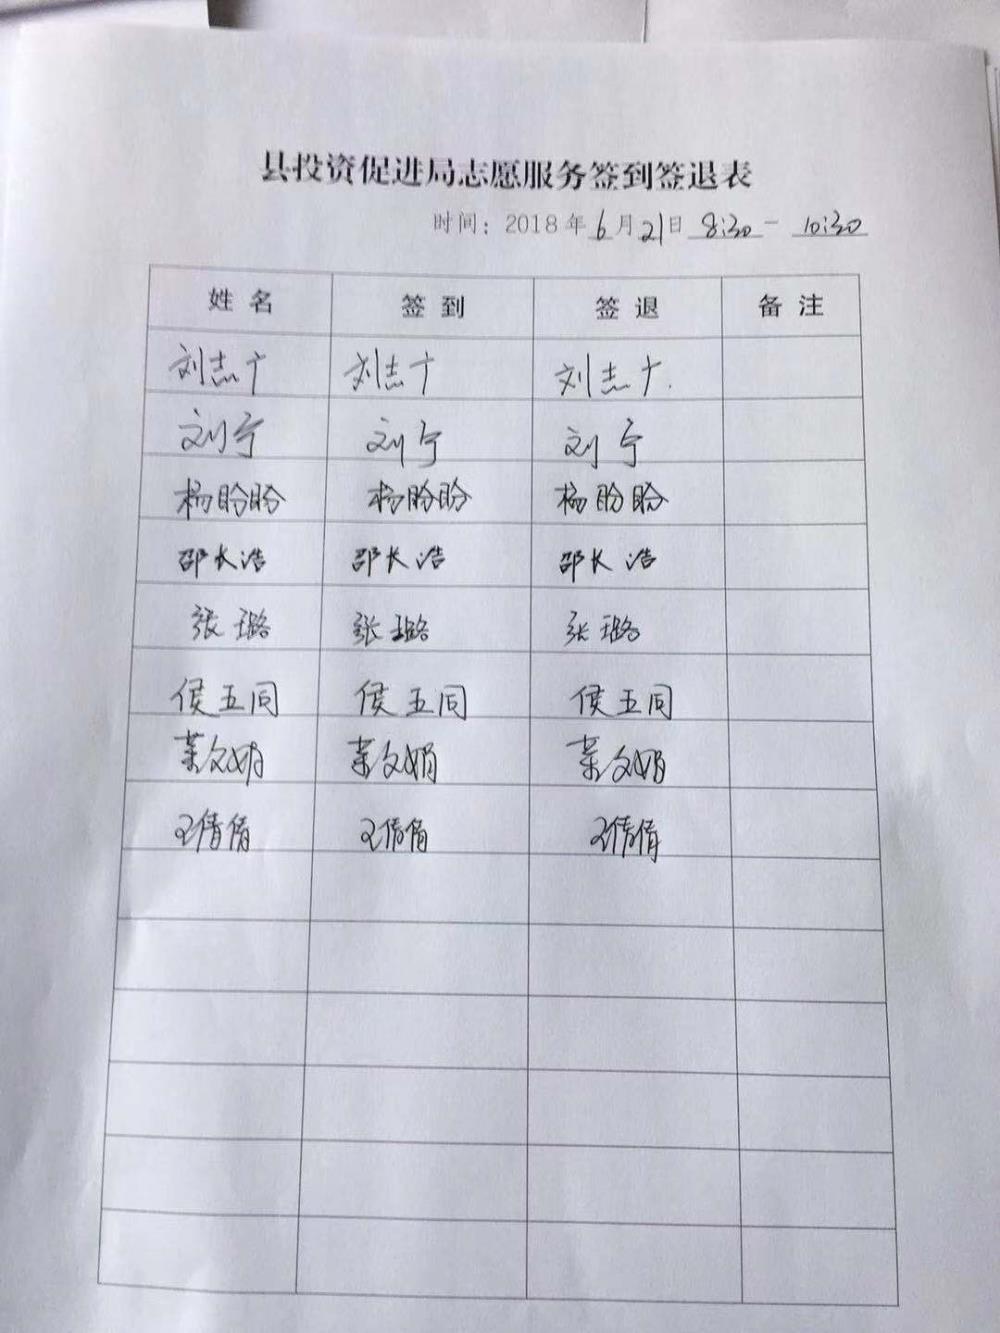 县投资促进局志愿服务签到签退表
时间：2018年6月21日 8:30 - 10:30
姓名 签到 签退 备注
刘志广 刘志广 刘志广
刘宁 刘宁 刘宁
杨盼盼 杨盼盼 杨盼盼
邵长浩 邵长浩 邵长浩
张璐 张璐 张璐
侯五同 侯五同 侯五同
董文娟 董文娟 董文娟
王倩倩 王倩倩 王倩倩